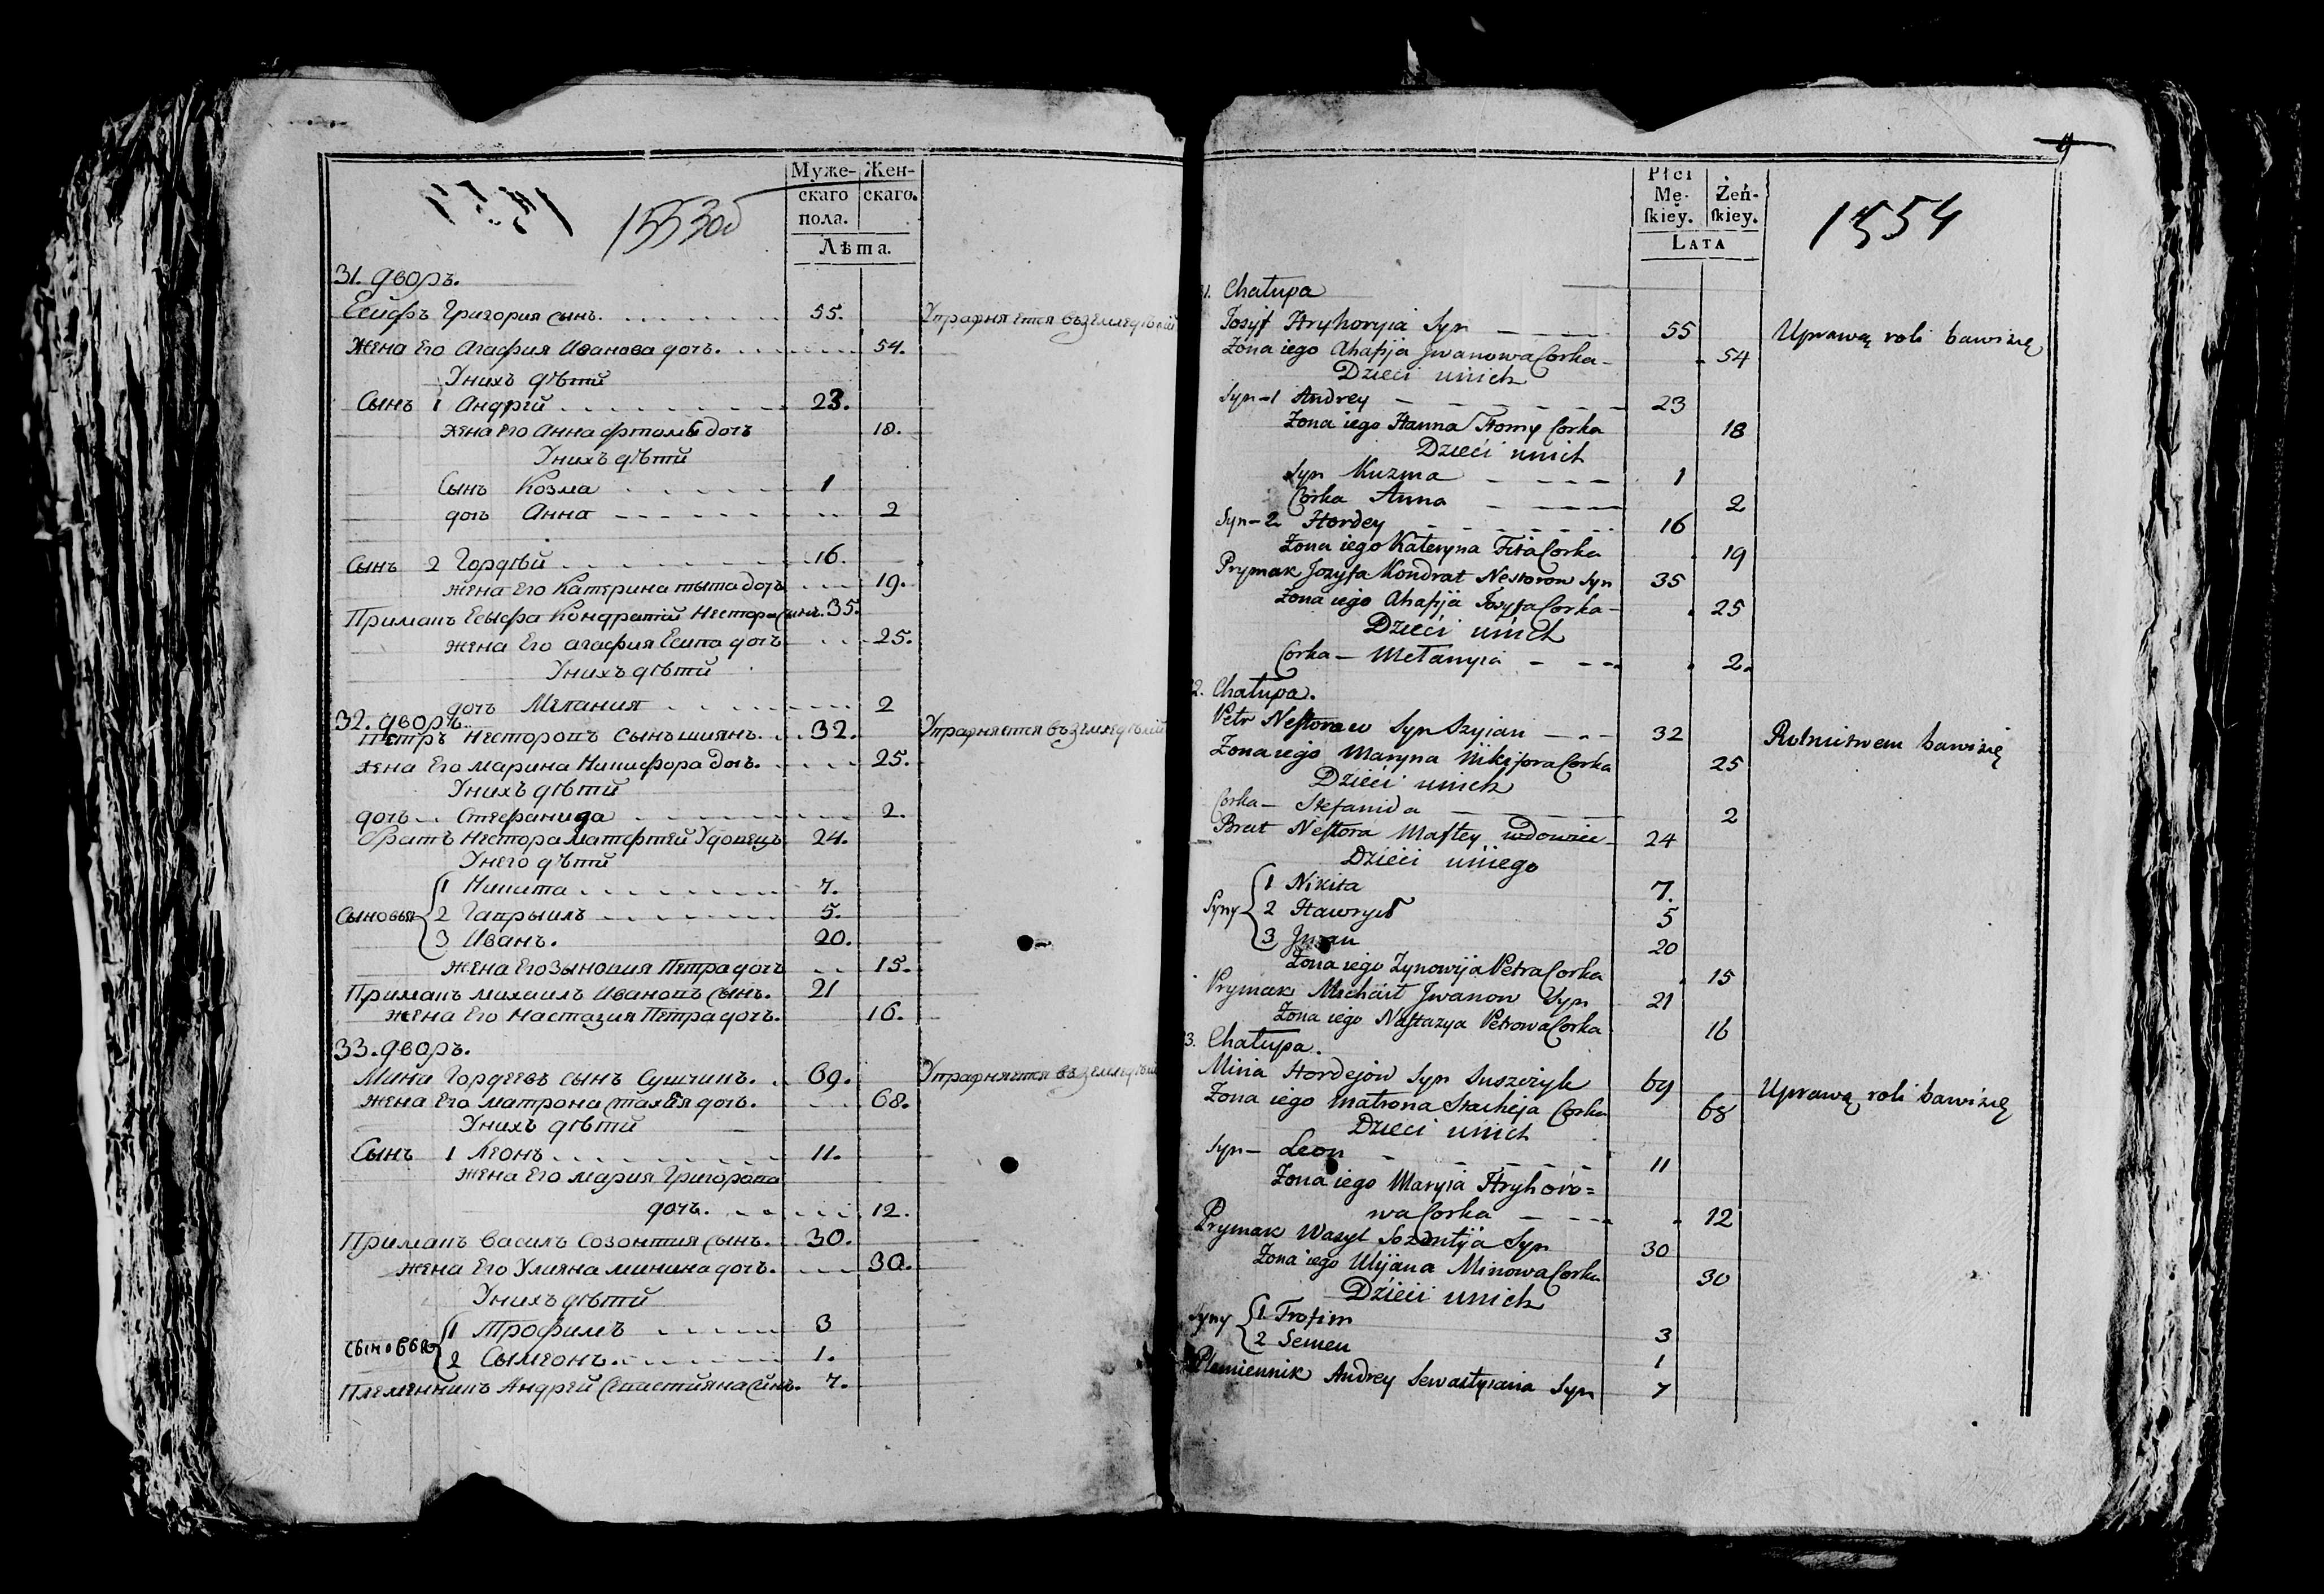 1553об
Муже-
скаго
пола.
Жен-
скаго.
Лѣта.
31. дворъ.
Есифъ Григория сынъ. 55. Упрарняется въземледѣлій
Жена Его Агафия Иванова дочъ. 54.
Унихъ дѣти
Сынъ 1 Андрій 23.
жена Его Анна фтомы дочъ 18.
Унихъ дѣти
Сынъ Козма 1
дочъ Анна 2
Сынъ 2 Гордѣй 16.
жена Его Катерина тыта дочъ 19.
Примапъ Есыфа Кондратій Нестора Сынъ. 35.
жена Его агафия Есипа дочъ 25.
Унихъ дѣти
дочъ Мелания 2
32. дворъ.
Петръ Несторопъ Сынъ шиянъ. 32. Упрарняется въземледѣлій
жена Его марина Никифора дочъ. 25.
Унихъ дѣти
дочъ Стефанида 2.
братъ Нестора Матфтей Удопецъ 24.
Унего дѣти
Сыновья
1 Никита 7.
2 Гапрыилъ 5.
3 Иванъ. 20.
жена Его Зыновия Петра дочъ 15.
Примапъ михаилъ Иванопъ Сынъ. 21
жена Его Настазия Петра дочъ. 16.
33. дворъ.
Мина Гордеевъ сынъ Сушчипъ. 69. Упрарняется въземледѣлій
жена Его матрона Стахѣя дочъ. 68.
Унихъ дѣти
Сынъ 1 Леонъ 11.
жена Его мария Григоропа
дочъ. 12.
Примапъ Василъ Созонтия Сынъ. 30.
жена Его Улияна минина дочъ. 30.
Унихъ дѣти
сыновья
1 Трофимъ 3
2 Сымеонъ. 1.
Племеннипъ Андрей Сепастияна Сынъ. 7.
9
Płci
Mę-
ſkiey.
Żeń-
ſkiey.
LATA
1554
1. Chałupa
Josyf Hryhoryia Syn 55 Uprawą roli bawi się
Żona iego Ahafija Jwanowa Corka 54
Dzieci unich
Syn-1 Andrey 23
Żona iego Hanna Homy Corka 18
Dzieci unich
Syn Kuzma 1
Corka Anna 2
Syn-2 Hordey 16
Żona iego Kateryna Tita Corka 19
Prymak Jozyfa Kondrat Nestorow Syn 35
Żona iego Ahafija Josyfa Corka 25
Dzieci unich
Corka Mełanyia 2.
2. Chałupa.
Petr Neſtorow Syn Szyian 32 Rolnictwem bawi się
Żona iego Maryna Nikifora Corka 25
Dzieci unich
Corka Stefanida 2
Brat Neſtora Maftey wdowiec 24
Dzieci uniego
Syny
1 Nikita 7.
2 Hawrył 5
3 Jwan 20
Żona iego Zynowija Petra Corka 15
Prymak Michaił Jwanow Syn 21
Żona iego Naſtazya Petrowa Corka 16
3. Chałupa.
Mina Hordejow Syn Suszczyk 69 Uprawą roli bawi się
Żona iego Matrona Stacheja Corka 68
Dzieci unich
Syn Leon 11
Żona iego Maryia Hryhoro=
wa Corka 12
Prymak Wasyl Sozontija Syn 30
Żona iego Ulijana Minowa Corka 30
Dzieci unich
Syny
1 Trofim 3
2 Semen 1
Plemiennik Andrey Sewastyiana Syn 7